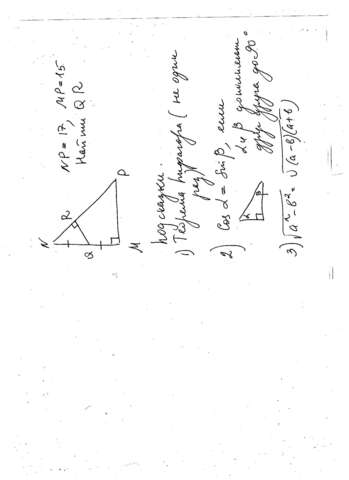 NP = 17, MP = 15
Найти QR
N
R
Q
P
M
подсказки.
1) Теорема пифагора (не один
раз)
2) Cos α = Sin β, если
α и β дополняют
друг друга до 90°
α
β
3) √a²-b² = √(a-b)(a+b)